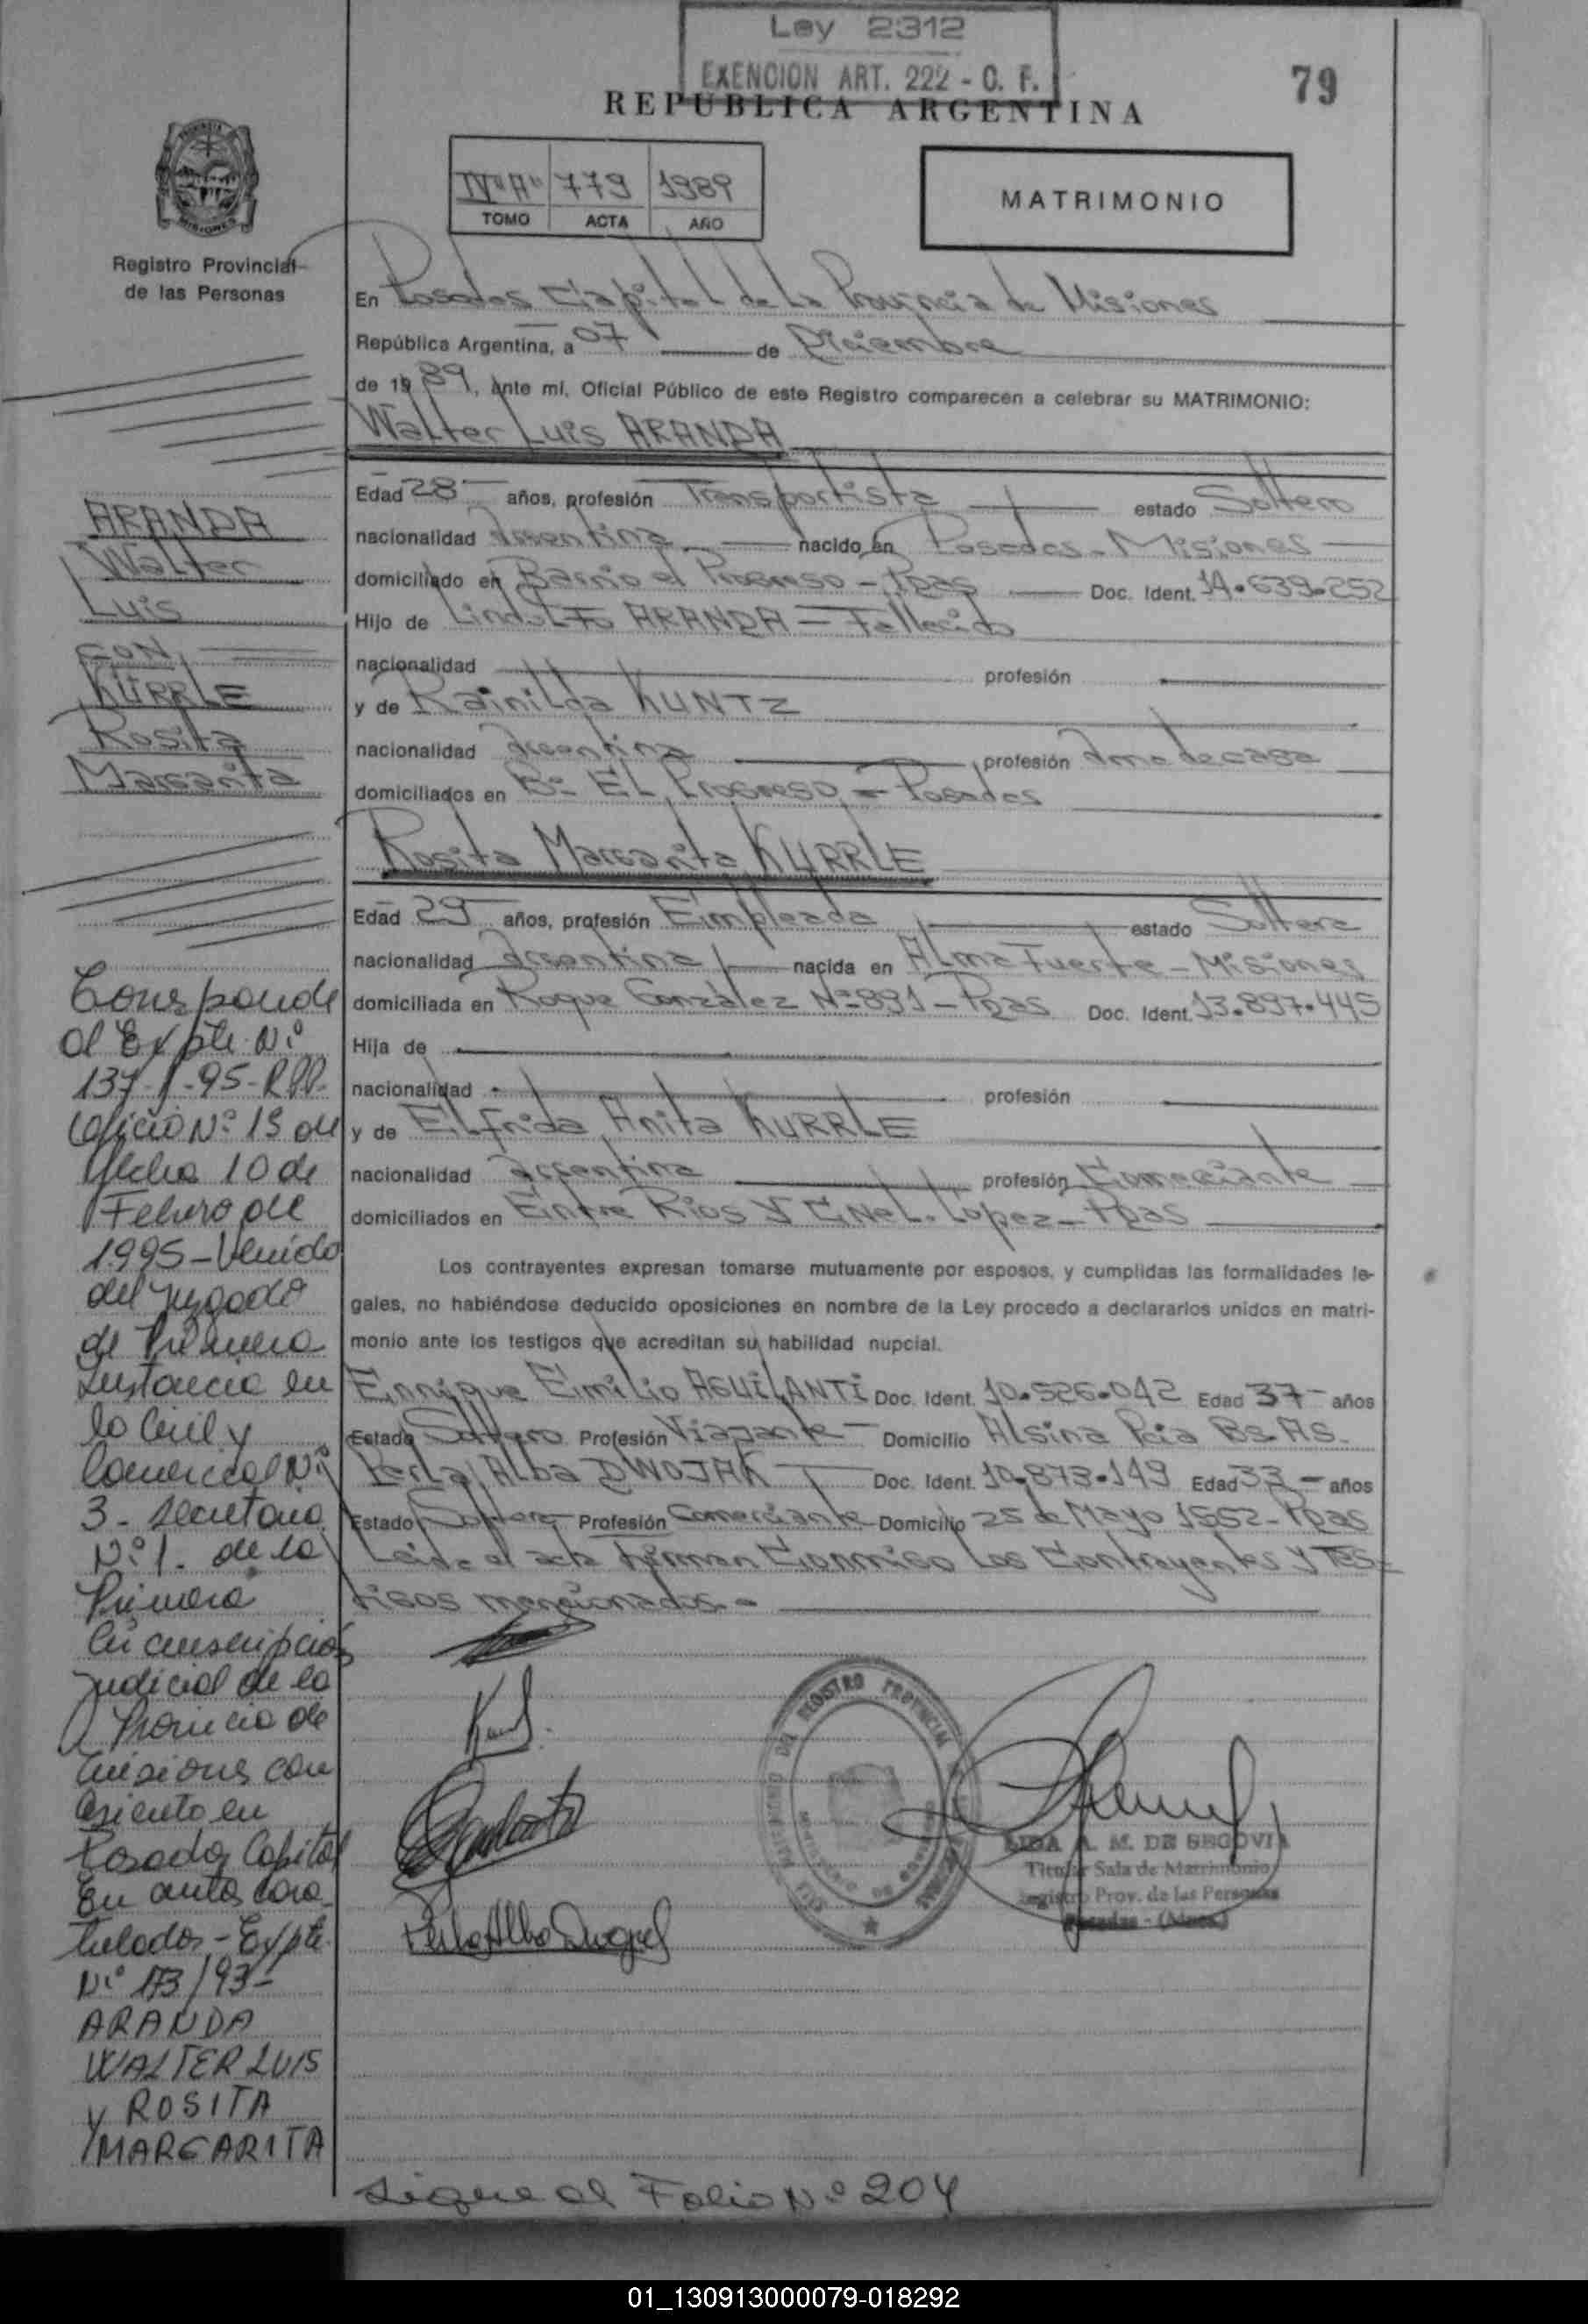 Ley 2312
EXENCION ART. 222 - C. F.
79
REPUBLICA ARGENTINA
IVº"A" 779 1989
TOMO ACTA AÑO
MATRIMONIO
PROVINCIA
MISIONES
Registro Provincial
de las Personas
En Posadas Capital de La Provincia de Misiones
República Argentina, a 07 de Diciembre
de 1989, ante mí, Oficial Público de este Registro comparecen a celebrar su MATRIMONIO:
Walter Luis ARANDA
Edad 28 años, profesión Transportista estado Soltero
nacionalidad Argentina nacido en Posadas - Misiones
domiciliado en Barrio el Progreso - Pdas Doc. Ident. 14.639.252
Hijo de Lindolfo ARANDA - Fallecido
nacionalidad profesión
y de Rainilda KUNTZ
nacionalidad Argentina profesión Ama de casa
domiciliados en Bº EL Progreso - Posadas
Rosita Margarita KURRLE
Edad 29 años, profesión Empleada estado Soltera
nacionalidad Argentina nacida en Alma Fuerte - Misiones
domiciliada en Roque González Nº 891 - Pdas Doc. Ident. 13.897.445
Hija de
nacionalidad profesión
y de Elfrida Anita KURRLE
nacionalidad Argentina profesión Comerciante
domiciliados en Entre Rios y CNeL. Lopez - Pdas
Los contrayentes expresan tomarse mutuamente por esposos, y cumplidas las formalidades le-
gales, no habiéndose deducido oposiciones en nombre de la Ley procedo a declararlos unidos en matri-
monio ante los testigos que acreditan su habilidad nupcial.
Enrique Emilio AGUILANTI Doc. Ident. 10.526.042 Edad 37 años
Estado Soltero Profesión Viajante Domicilio Alsina Pcia Bs. AS.
Perla Alba DWOJAK Doc. Ident. 10.873.149 Edad 33 años
Estado Soltera Profesión Comerciante Domicilio 25 de Mayo 1552 - Pdas
Leida el acta firman Conmigo Los Contrayentes y Tes-
tigos mencionados.-
LIDA A. M. DE SEGOVIA
Titular Sala de Matrimonio
Registro Prov. de las Personas
Posadas - (Mnes)
ARANDA
Walter
Luis
CON
KURRLE
Rosita
Margarita
Corresponde
al Expte. Nº
137-1-95-R.P.P.
Oficio Nº 15 de
fecha 10 de
Febrero de
1995 - Venido
del juzgado
de Primera
Instancia en
lo Civil y
Comercial Nº
3 - Secretaria
Nº 1. de la
Primera
Circunscripción
judicial de la
Provincia de
Misiones con
asiento en
Posadas Capital
En autos cara-
tulados - Expte.
Nº 173/93-
ARANDA
WALTER LUIS
y ROSITA
MARGARITA
Sigue al Folio Nº 204
01_130913000079-018292